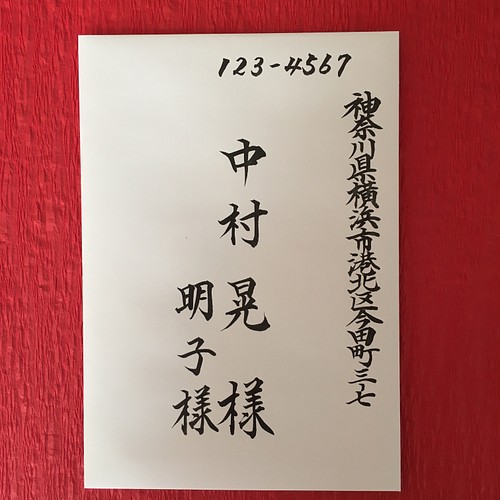 123-4567
神奈川県横浜市港北区今田町三-七
中村 晃 様
明子 様